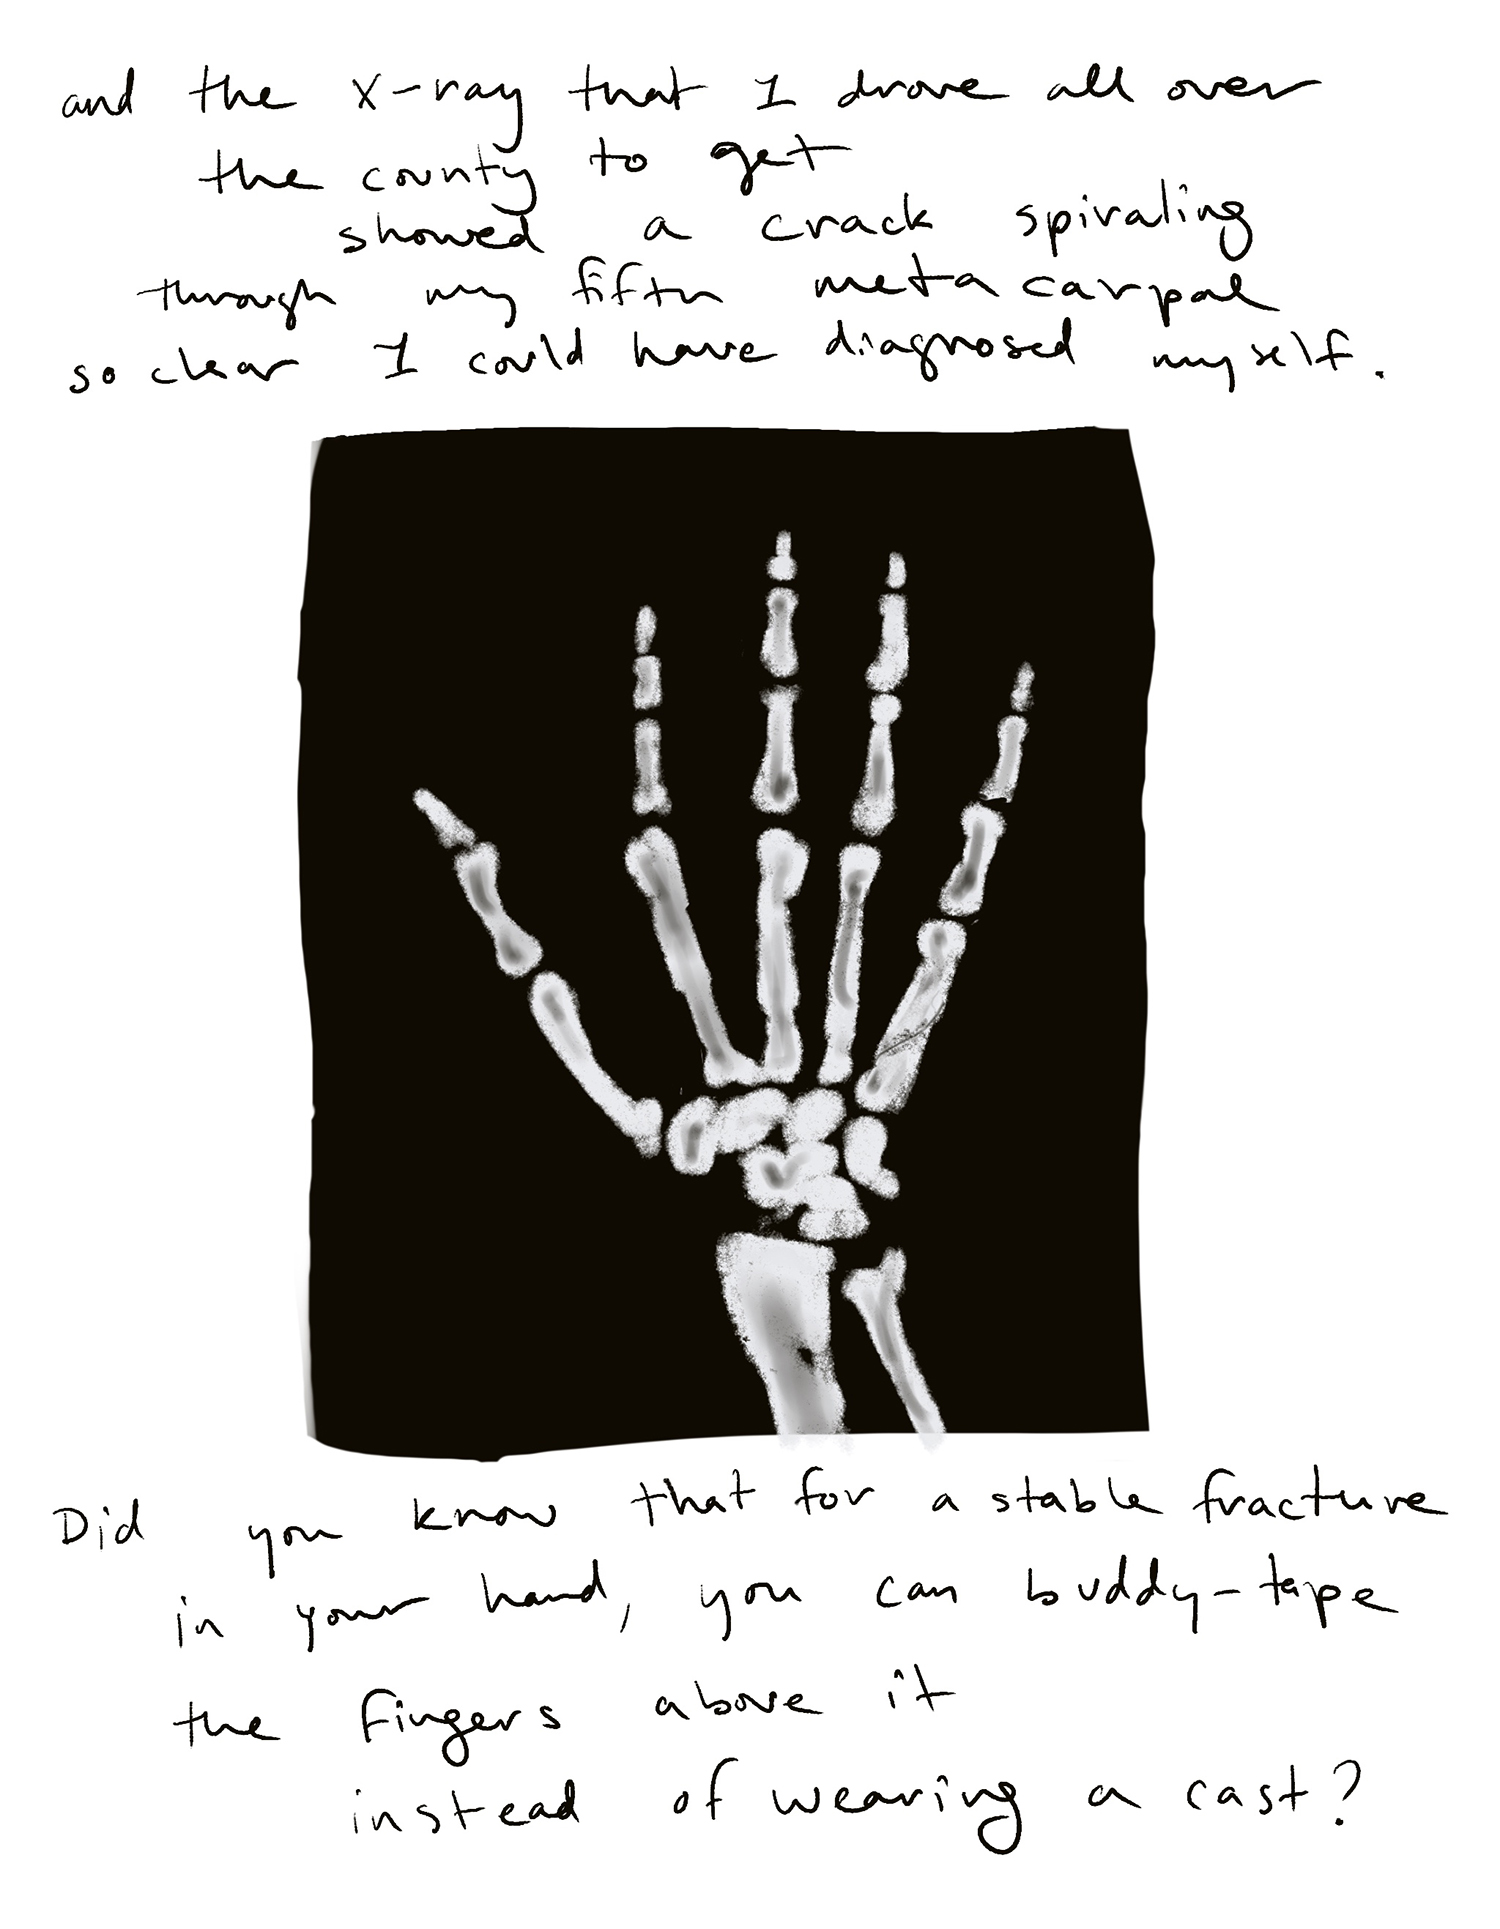 and the x-ray that I drove all over
the county to get
showed a crack spiraling
through my fifth metacarpal
so clear I could have diagnosed myself.
Did you know that for a stable fracture
in your hand, you can buddy-tape
the fingers above it
instead of wearing a cast?